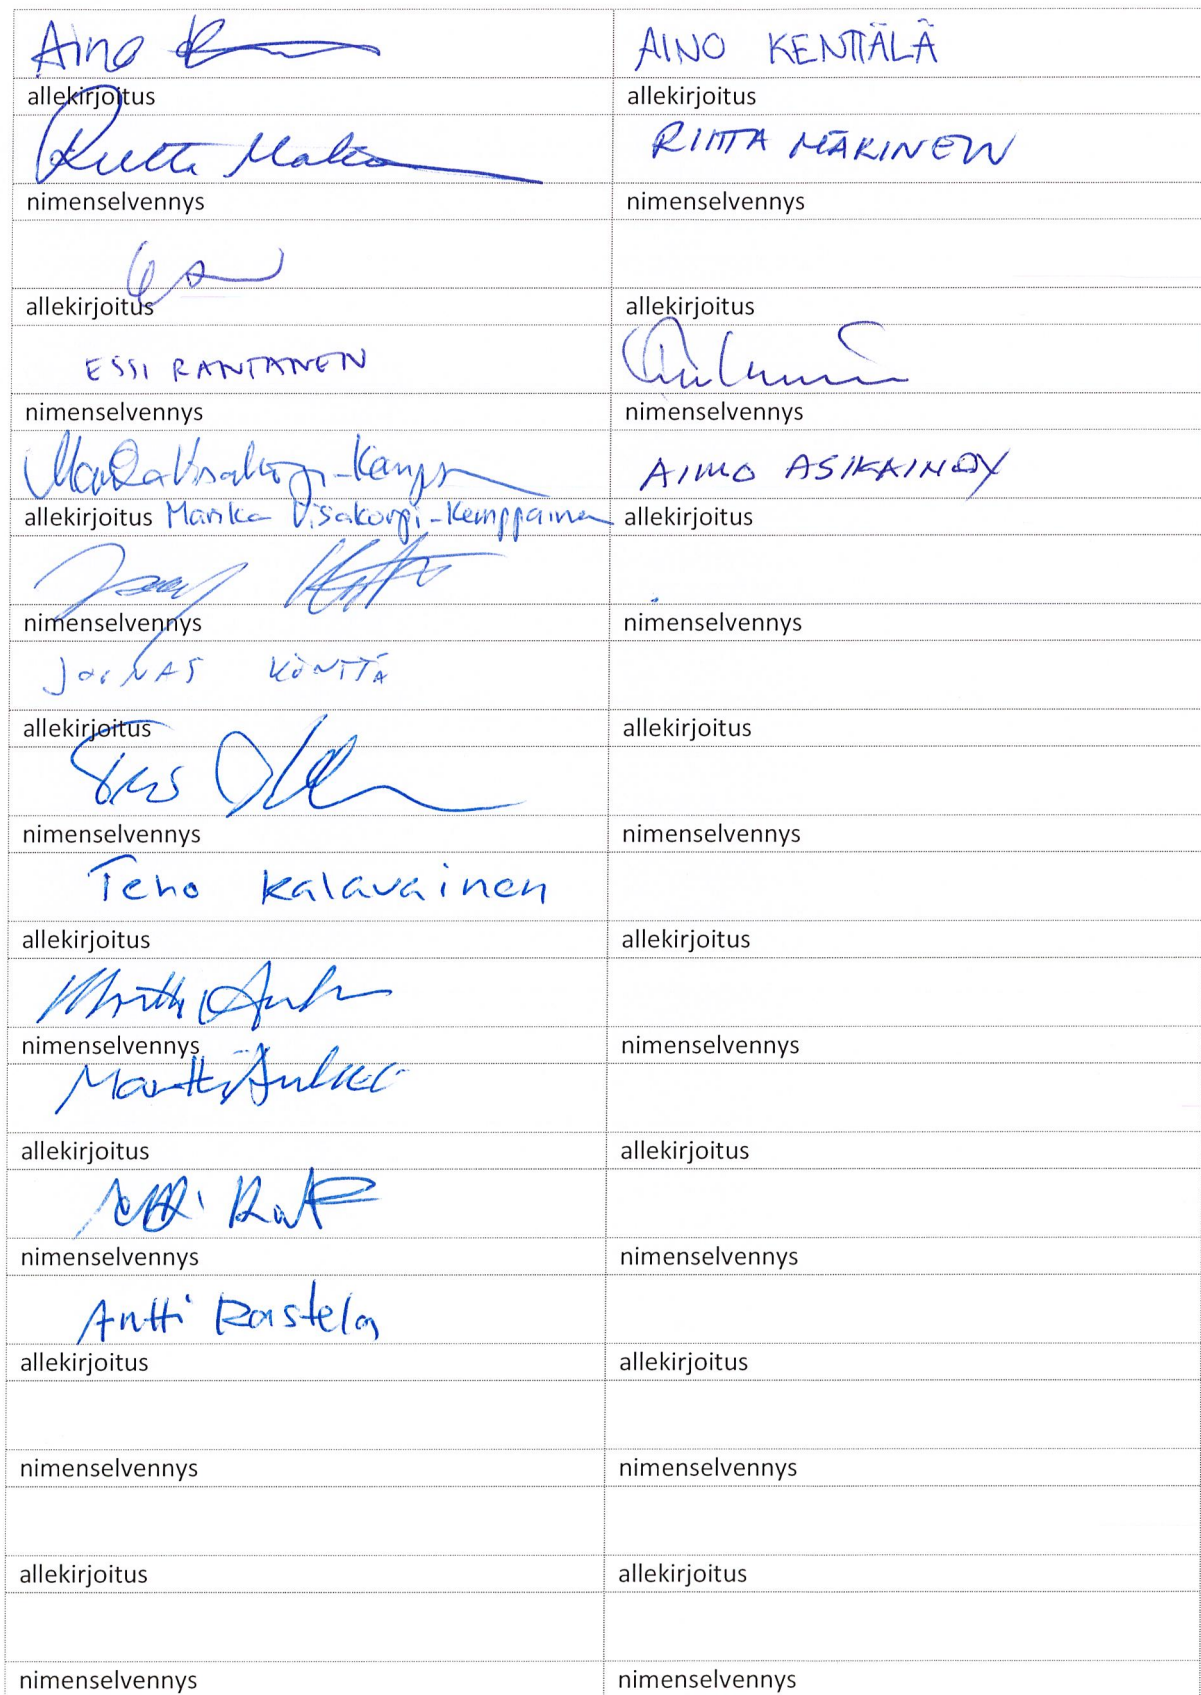 Aino AINO KENTTÄLÄ
allekirjoitus allekirjoitus
RIITTA MÄKINEN
nimenselvennys nimenselvennys
allekirjoitus allekirjoitus
ESSI RANTANEN
nimenselvennys nimenselvennys
AIMO ASIKAINEN
allekirjoitus Marika Visakorpi-Kemppainen allekirjoitus
nimenselvennys nimenselvennys
JOONAS KÖNTTÄ
allekirjoitus allekirjoitus
nimenselvennys nimenselvennys
Teho Kalavainen
allekirjoitus allekirjoitus
nimenselvennys nimenselvennys
Martti
allekirjoitus allekirjoitus
nimenselvennys nimenselvennys
Antti Rastela
allekirjoitus allekirjoitus
nimenselvennys nimenselvennys
allekirjoitus allekirjoitus
nimenselvennys nimenselvennys